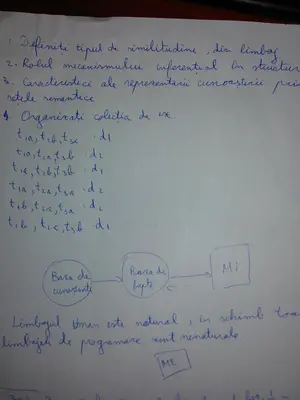 1. Definiti tipul de similitudine, din limbaj
2. Rolul mecanismului inferențial în structura
3. Caracteristici ale reprezentării cunoașterii prin
rețele semantice
4. Organizati colecția de ex
t1a, t2b, t3c . d1
t1a, t2a, t3b . d2
t1c, t2b, t3b . d1
t1a, t2a, t3a . d2
t1b, t2c, t3b . d1
Baza de cunostinte
Baza de fapte
MI
Limbajul uman este natural, in schimb toate
limbajele de programare sunt nenaturale
ME